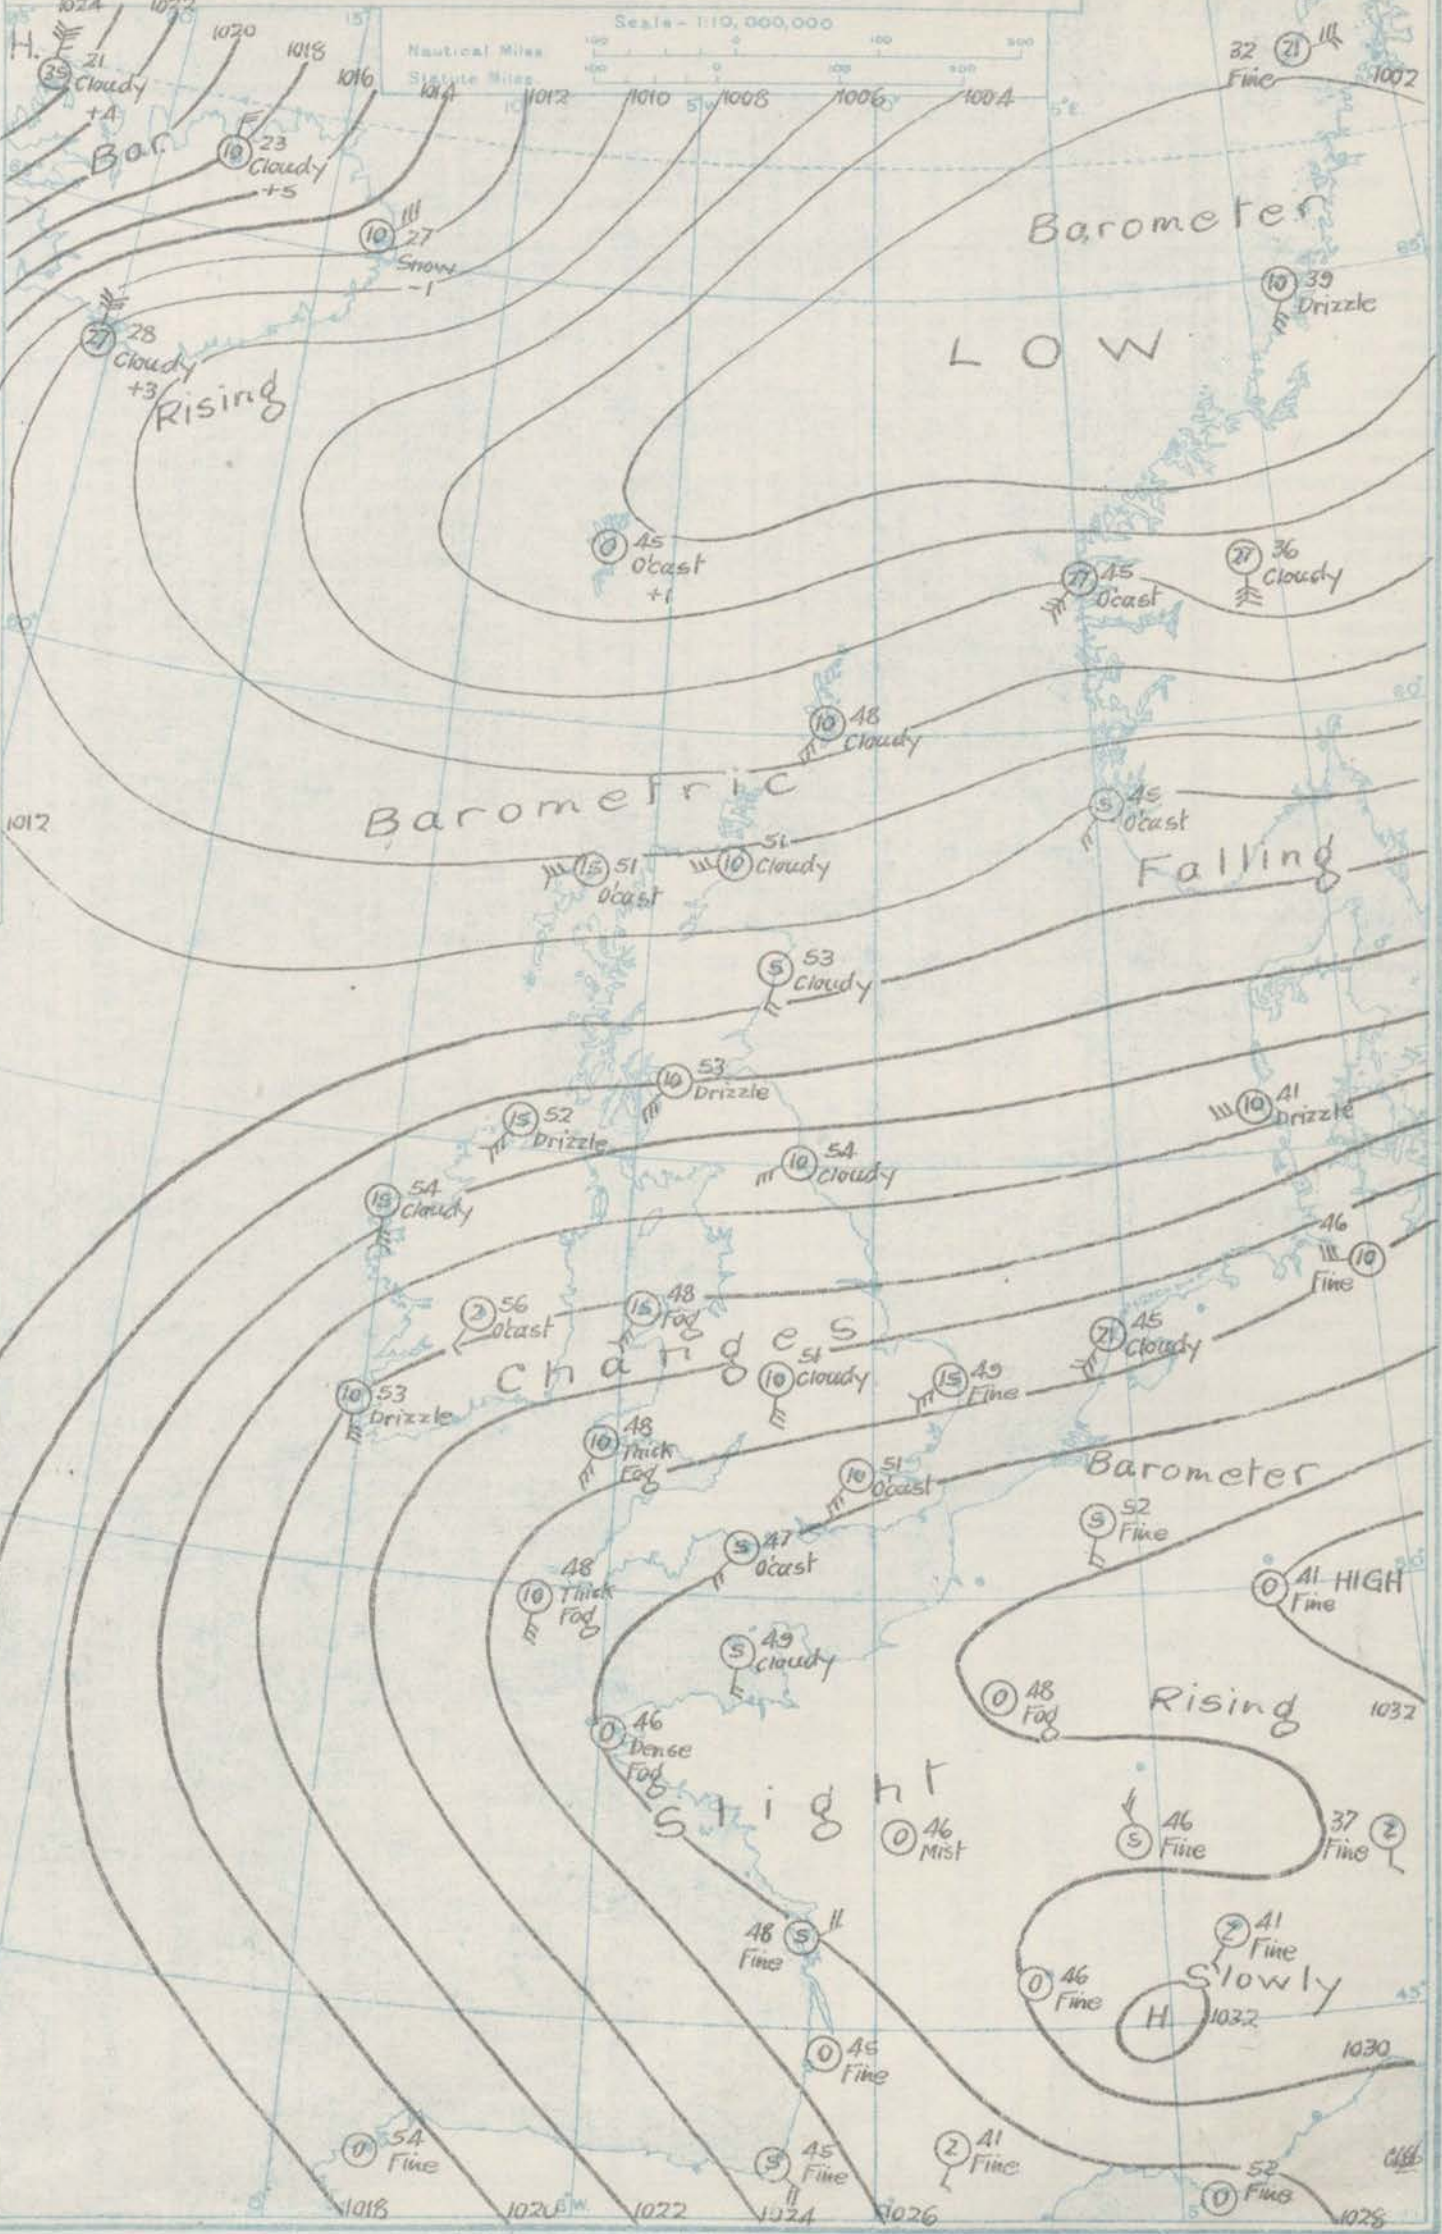 1024
1022
1020
1018
1016
1014
1012
1010
1008
1006
1004
1002
Scale - 1:10,000,000
Nautical Miles
100 0 100 300
Statute Miles
100 0 100 300
15°
10
5°W
0°
5°E
H.
35 21
Cloudy
+4
Bar
10 23
Cloudy
+5
10 27
Snow
-1
27 28
Cloudy
+3
Rising
32 21
Fine
Barometer
65°
10 39
Drizzle
LOW
0 45
O'cast
+1
27 45
O'cast
27 36
Cloudy
60°
60°
10 48
Cloudy
Barometric
1012
5 45
O'cast
Falling
15 51
O'cast
10 51
Cloudy
5 53
Cloudy
10 53
Drizzle
15 52
Drizzle
10 54
Cloudy
10 41
Drizzle
15 54
Cloudy
46
10
Fine
2 56
O'cast
15 48
Fog
21 45
Cloudy
Changes
10 51
Cloudy
15 49
Fine
10 53
Drizzle
10 48
Thick
Fog
10 51
O'cast
Barometer
5 52
Fine
5 47
O'cast
10 48
Thick
Fog
0 41
Fine
HIGH
5 49
Cloudy
0 48
Fog
Rising
1032
0 46
Dense
Fog
Slight
0 46
Mist
5 46
Fine
37 2
Fine
48 5
Fine
2 41
Fine
Slowly
0 46
Fine
H
1032
45°
0 45
Fine
1030
0 54
Fine
5 45
Fine
2 41
Fine
0 52
Fine
1018
1020
5°W
1022
1024
1026
0°
5
1028